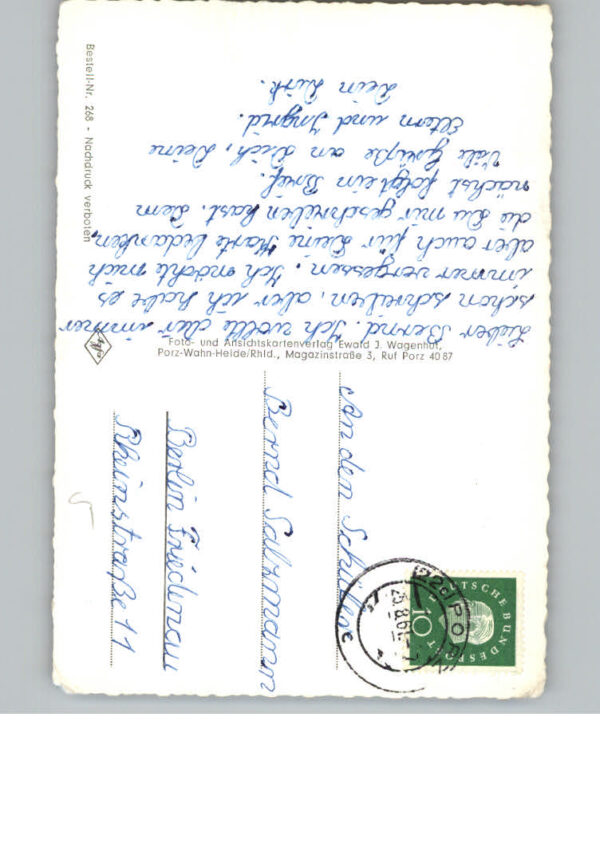 Lieber Bernd. Ich wollte dir immer
schon schreiben, aber ich habe es
immer vergessen. Ich möchte mich
aber auch für Deine Karte bedanken,
die Du mir geschrieben hast. Dem
nächst folgt ein Brief.
Viele Grüße an Dich, Deine
Eltern und Ingrid.
Dein Dirk.
Foto- und Ansichtskartenverlag Ewald J. Wagenhut,
Porz-Wahn-Heide/Rhld., Magazinstraße 3, Ruf Porz 4087
Bestell-Nr. 268 - Nachdruck verboten
An den Schüler
Bernd Salzmann
Berlin Friedenau
Rheinstraße 11
DEUTSCHE BUNDESPOST
10
22c PORZ